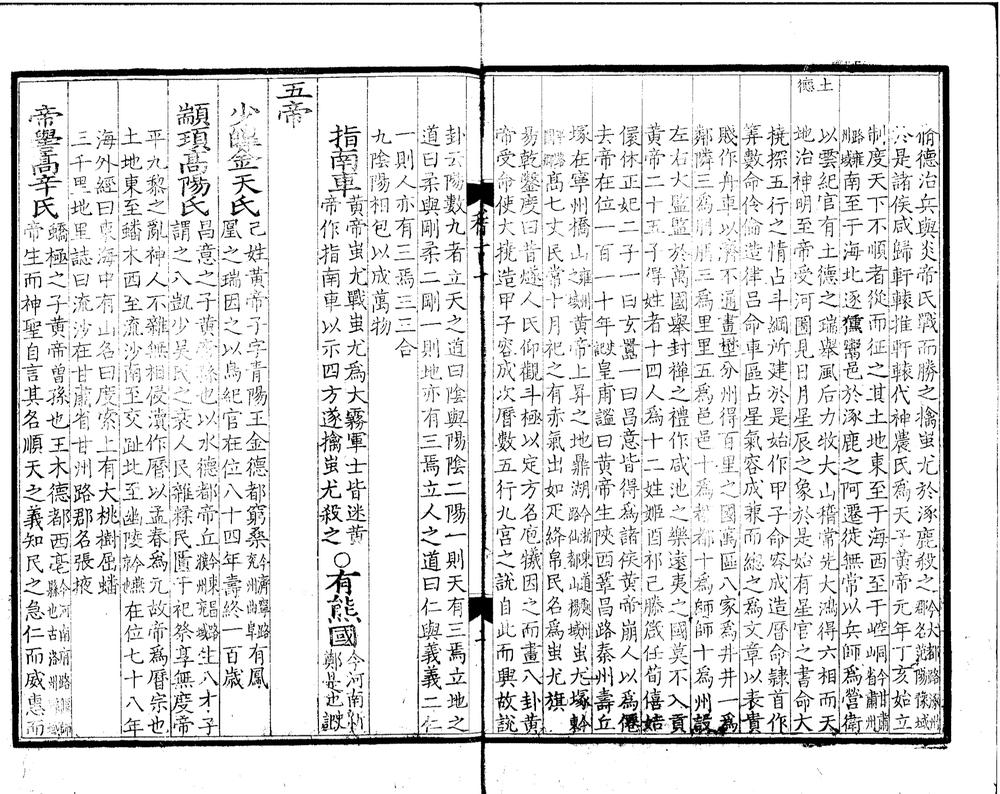 土德
脩德治兵與炎帝氏戰而勝之擒蚩尤於涿鹿殺之
於是諸侯咸歸軒轅推軒轅代神農氏爲天子黃帝元年丁亥始立
制度天下不順者從而征之其土地東至于海西至于崆峒
南至于海北逐獯鬻邑於涿鹿之阿遷徙無常以兵師爲營衛
以雲紀官有土德之瑞舉風后力牧大山稽常先大鴻得六相而天
地治神明至帝受河圖見日月星辰之象於是始有星官之書命大
撓探五行之情占斗綱所建於是始作甲子命容成造曆命隸首作
筭數命伶倫造律呂命車區占星氣容成兼而總之爲文章以表貴
賤作舟車以濟不通畫壄分州得百里之國萬區八家爲井井一爲
鄰鄰三爲朋朋三爲里里五爲邑邑十爲都都十爲師師十爲州設
左右大監監於萬國舉封禪之禮作咸池之樂遠夷之國莫不入貢
黃帝二十五子得姓者十四人爲十二姓姬酉祁己滕箴任荀僖姞
儇依正妃二子一曰玄囂一曰昌意皆得爲諸侯黃帝崩人以爲僊
去帝在位一百一十年皇甫謐曰黃帝生陝西鞏昌路秦州壽丘
塚在寧州橋山之黃帝上昇之地鼎湖蚩尤塚
高七丈民常十月祀之有赤氣出如疋絳帛民名爲蚩尤旗
易乾鑿度曰昔燧人氏仰觀斗極以定方名庖犧因之而畫八卦黃
帝受命使大撓造甲子容成次曆數五行九宮之說自此而興故說
卦云陽數九者立天之道曰陰與陽陰二陽一則天有三焉立地之
道曰柔與剛柔二剛一則地亦有三焉立人之道曰仁與義義二仁
一則人亦有三焉三三合
九陰陽相包以成萬物
指南車 黃帝蚩尤戰蚩尤爲大霧軍士皆迷黃
帝作指南車以示四方遂擒蚩尤殺之 ○有熊國 今河南新
鄭是也
五帝
少皥金天氏 己姓黃帝子字青陽王金德都窮桑有鳳
凰之瑞因之以鳥紀官在位八十四年壽終一百歲
顓頊高陽氏 昌意之子黃帝孫也以水德都帝丘生八才子
謂之八凱少昊氏之衰人民雜糅民匱于祀祭享無度帝
平九黎之亂神人不雜無相侵瀆作曆以孟春爲元故帝爲曆宗也
土地東至蟠木西至流沙南至交趾北至幽陵在位七十八年
海外經曰東海中有山名曰度索上有大桃樹屈蟠
三千里地里誌曰流沙在甘肅省甘州路郡名張掖
帝嚳高辛氏 蟜極之子黃帝曾孫也王木德都西亳
帝生而神聖自言其名順天之義知民之急仁而威惠而